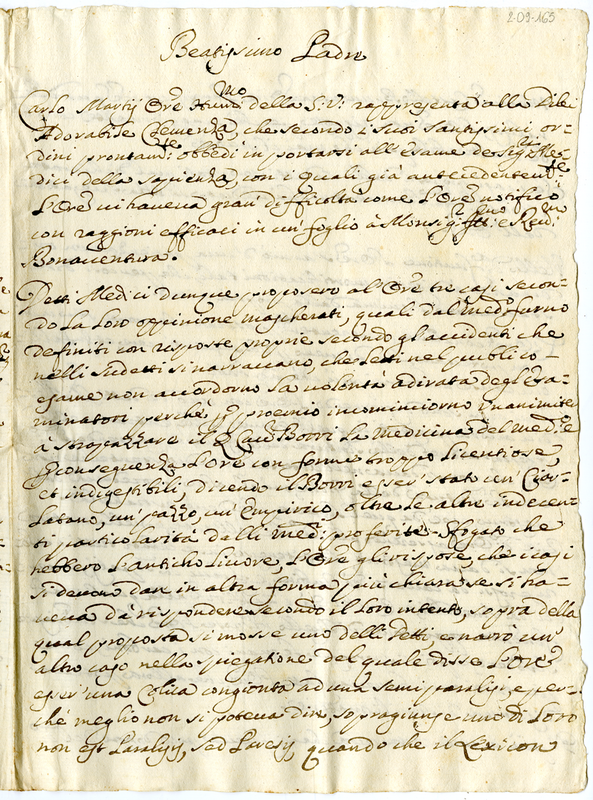 2-09-165
Beatissimo Padre
Carlo Martij Ore Humo della S: V: rappresenta alla di lei
Adorabile Clemenza, che secondo i suoi santissimi or-
dini prontamte: obbedì in portarsi all'esame de Sigri Me-
dici della sapienza, con i quali già antecedentemte
l'Ore vi haveva gran difficoltà come l'Ore notificò
con raggioni efficaci in un foglio à Monsigr Illmo: e Revmo:
Bonaventura.
Detti Medici dunque proposero all'Ore tre casi secon-
do la loro oppinione mascherati, quali dal medmo furno
definiti con risposte proprie secondo gl'accidenti che
nelli sudetti si narravano, che letti nel publico
esame non accordorno la volontà adirata degl'esa-
minatori perchè, p proemio incominciorno unanimite
à strapazzare il Caur Borri la medicina del medmo: e
p conseguenza l'Ore con forme troppo licentiose,
et indigestibili, dicendo il Borri esser stato un Ciar-
latano, un pazzo, un Empirico, oltre le altre indecen-
ti particolarità dalli medmi: proferite. Sfogato che
hebbero l'anticho livore, l'Ore gli rispose, che i casi
si devono dare in altra forma più chiara se si ha-
veva dà rispondere secondo il loro intento, sopra della
qual proposta si mosse uno delli detti, e narrò un'
altro caso nella spiegatione del quale disse l'Ore
esser'una Colica congionta ad una semiparalisi, e per-
chè meglio non si poteva dire, sopragiunse uno di loro
non est Paralysis, sed Paresis, quando che il Lexicon